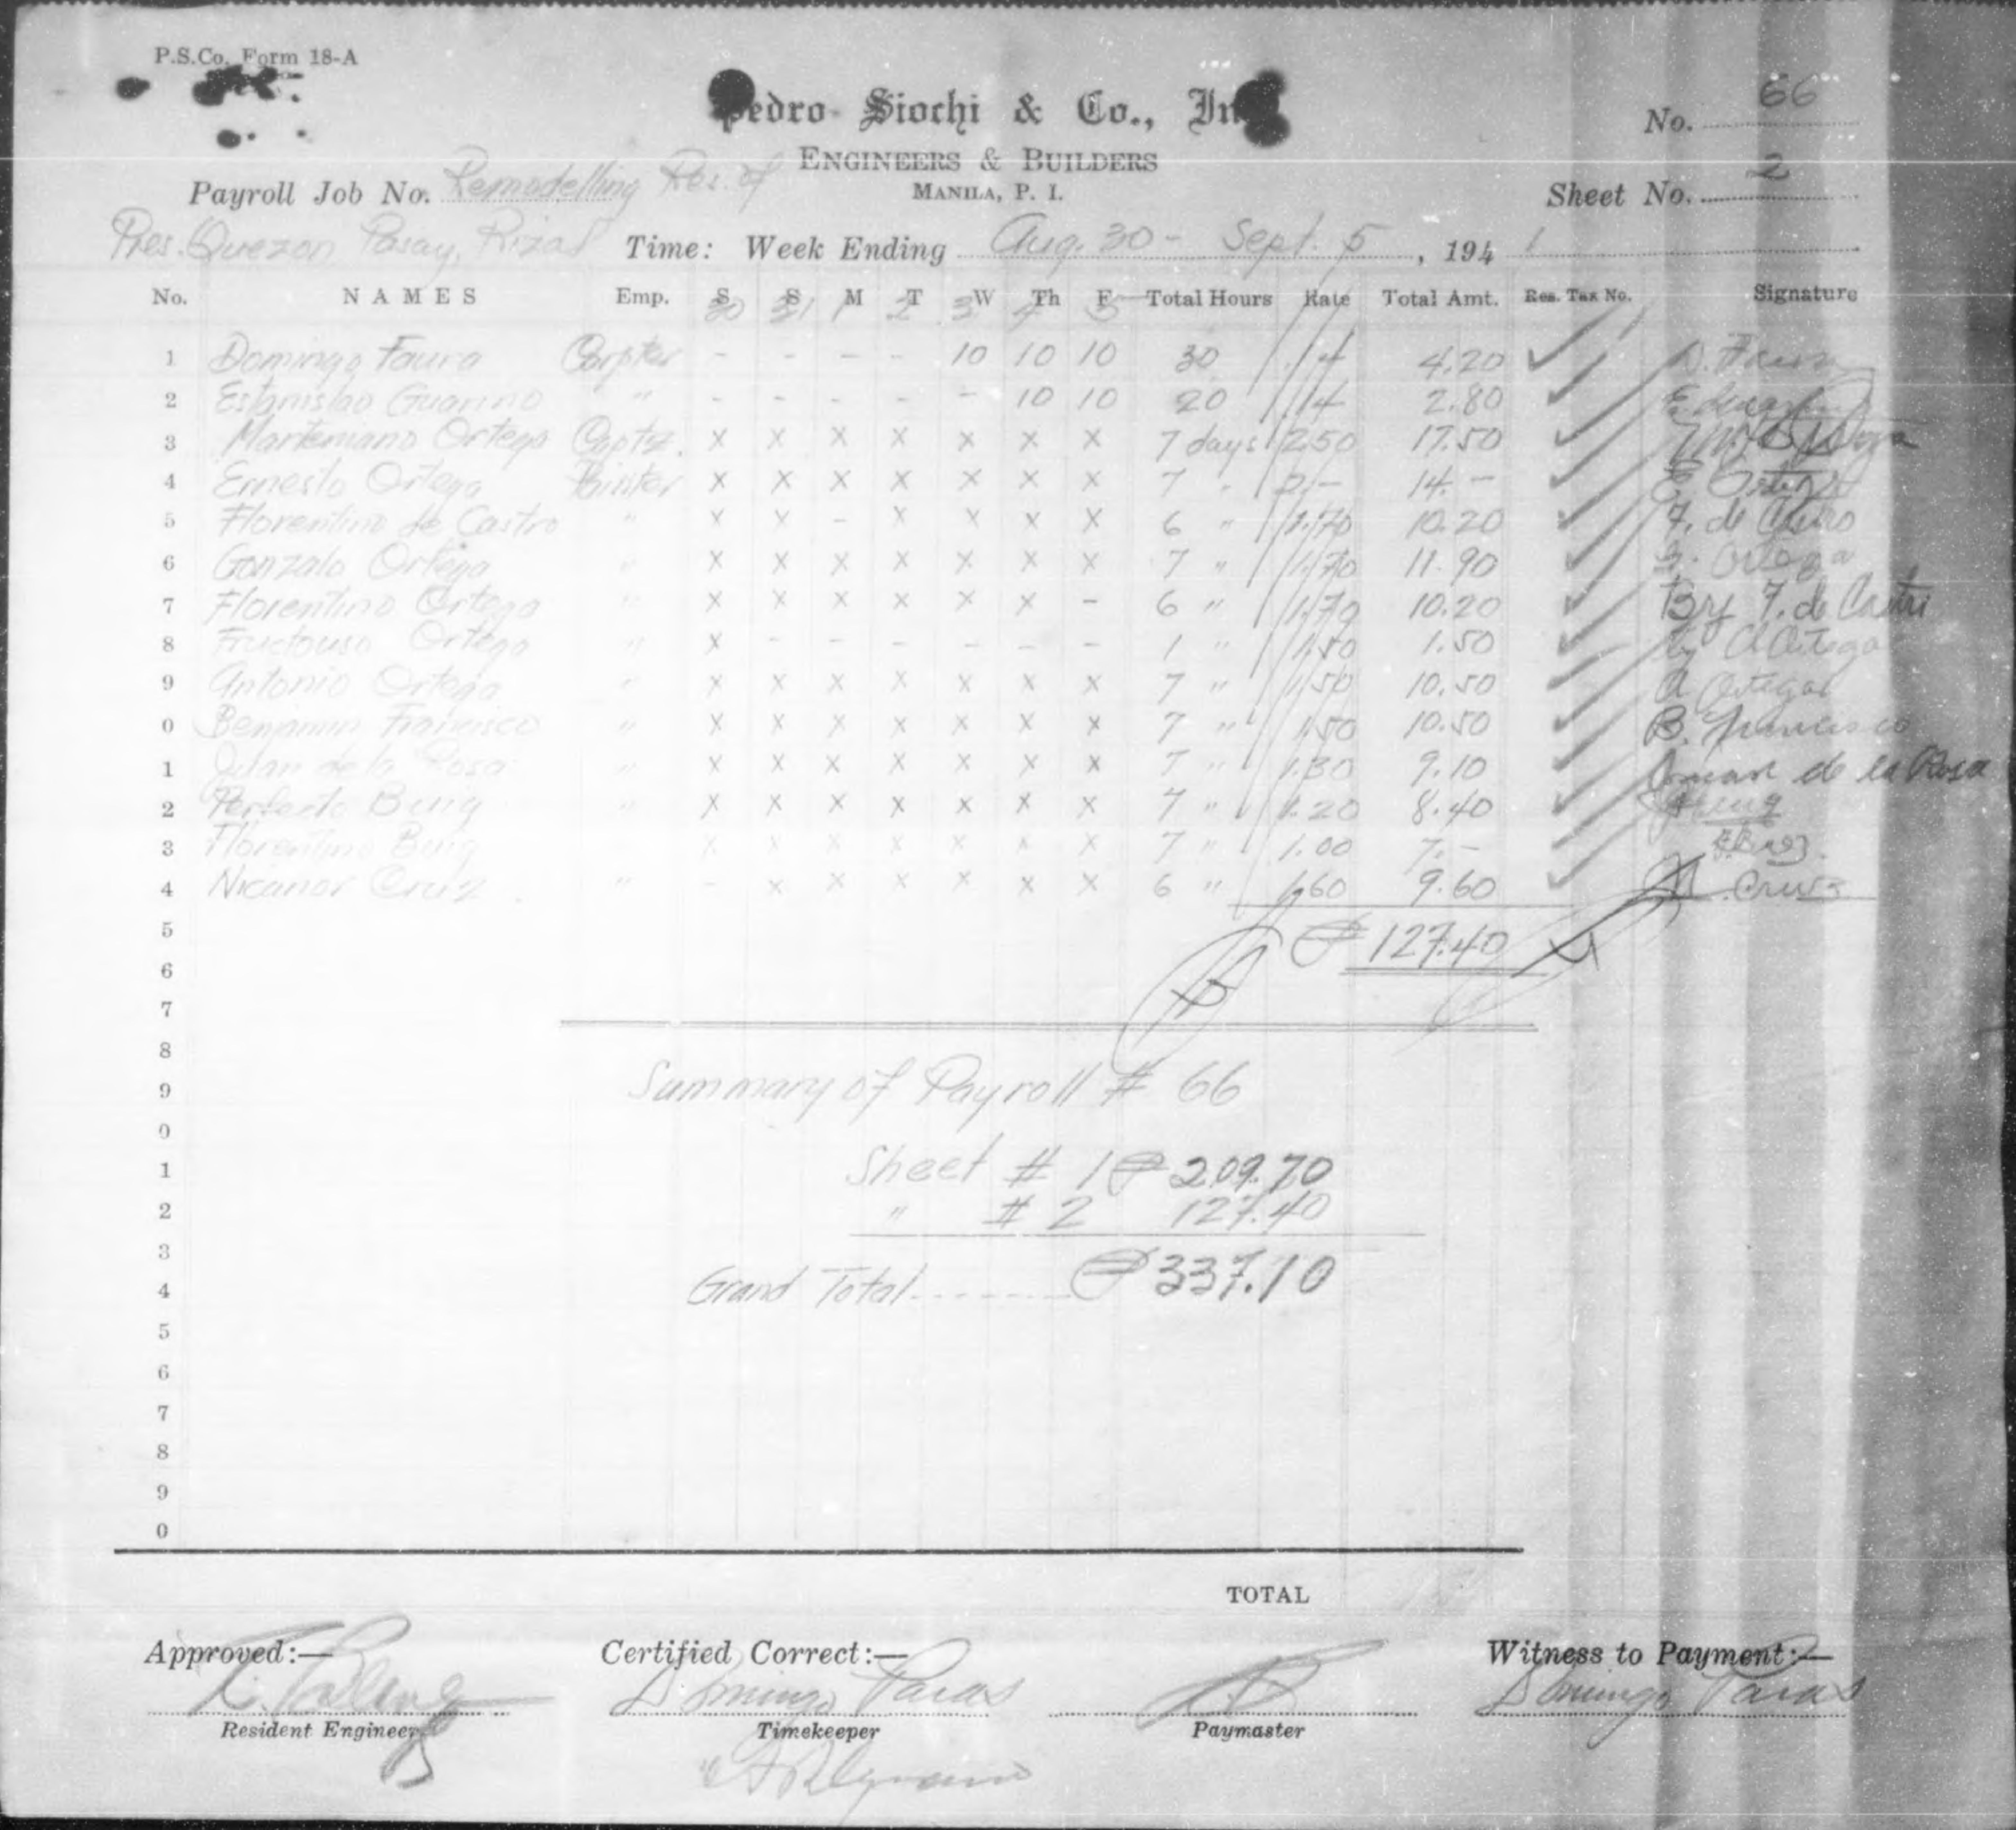 P.S.Co. Form 18-A
Pedro Siochi & Co., In
ENGINEERS & BUILDERS
MANILA, P. I.
No. 66
Sheet No. 2
Payroll Job No. Remodelling Res. of
Pres. Quezon, Pasay, Rizal Time: Week Ending Aug. 30 - Sept. 5, 1941
No. NAMES Emp. S S M T W Th F Total Hours Rate Total Amt. Res. Tax No. Signature
30 31 1 2 3 4 5
1 Domingo Faura Carpter - - - - 10 10 10 30 .14 4.20 ✓
2 Estanislao Guarino " - - - - - 10 10 20 .14 2.80 ✓
3 Ortega x x x x x x x 7 days 2.50 17.50 ✓
4 Ernesto Ortega Painter x x x x x x x 7 " 2.- 14.- ✓ E. Ortega
5 Florentino de Castro " x x - x x x x 6 " 1.70 10.20 ✓ F. de Castro
6 Gonzalo Ortega " x x x x x x x 7 " 1.70 11.90 ✓ G. Ortega
7 Florentino Ortega " x x x x x x - 6 " 1.70 10.20 ✓ By F. de Castro
8 Fructouso Ortega " x - - - - - - 1 " 1.50 1.50 ✓ by A Ortega
9 Antonio Ortega " x x x x x x x 7 " 1.50 10.50 ✓ A Ortega
0 Benjamin Francisco " x x x x x x x 7 " 1.50 10.50 ✓ B. Francisco
1 Juan de la Rosa " x x x x x x x 7 " 1.30 9.10 ✓ Juan de la Rosa
2 Perfecto Buig " x x x x x x x 7 " 1.20 8.40 ✓
3 Florentino Buig x x x x x x x 7 " 1.00 7.- ✓
4 Nicanor Cruz " - x x x x x x 6 " 1.60 9.60 ✓ N. Cruz
5 ₱ 127.40
6
7
8
9 Summary of Payroll # 66
0
1 Sheet # 1 ₱ 209.70
2 " # 2 127.40
3
4 Grand Total ........ ₱ 337.10
5
6
7
8
9
0
TOTAL
Approved:— Certified Correct:— Witness to Payment:—
Domingo Paras Domingo Paras
Resident Engineer Timekeeper Paymaster